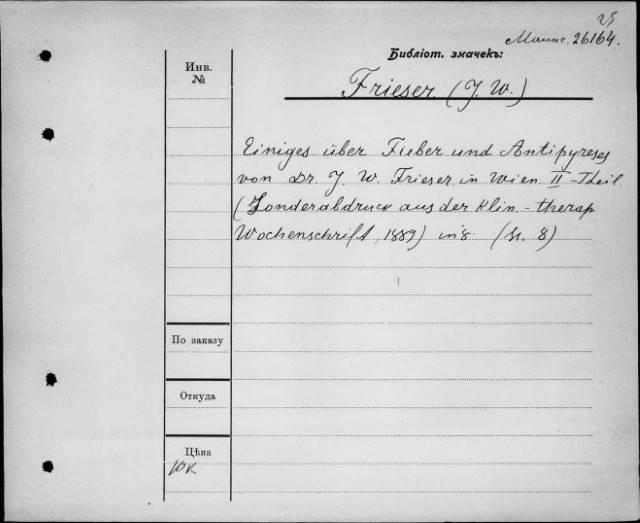 26164.
Библіот. значекъ:
Инв.
№
Frieser (J. W.)
Einiges über Fieber und Antipyreses
von Dr. J. W. Frieser in Wien II-Theil
(Sonderabdruck aus der Klin.-therap
Wochenschrift, 1889) in 8 ( 8)
По заказу
Откуда
Цѣна
10к